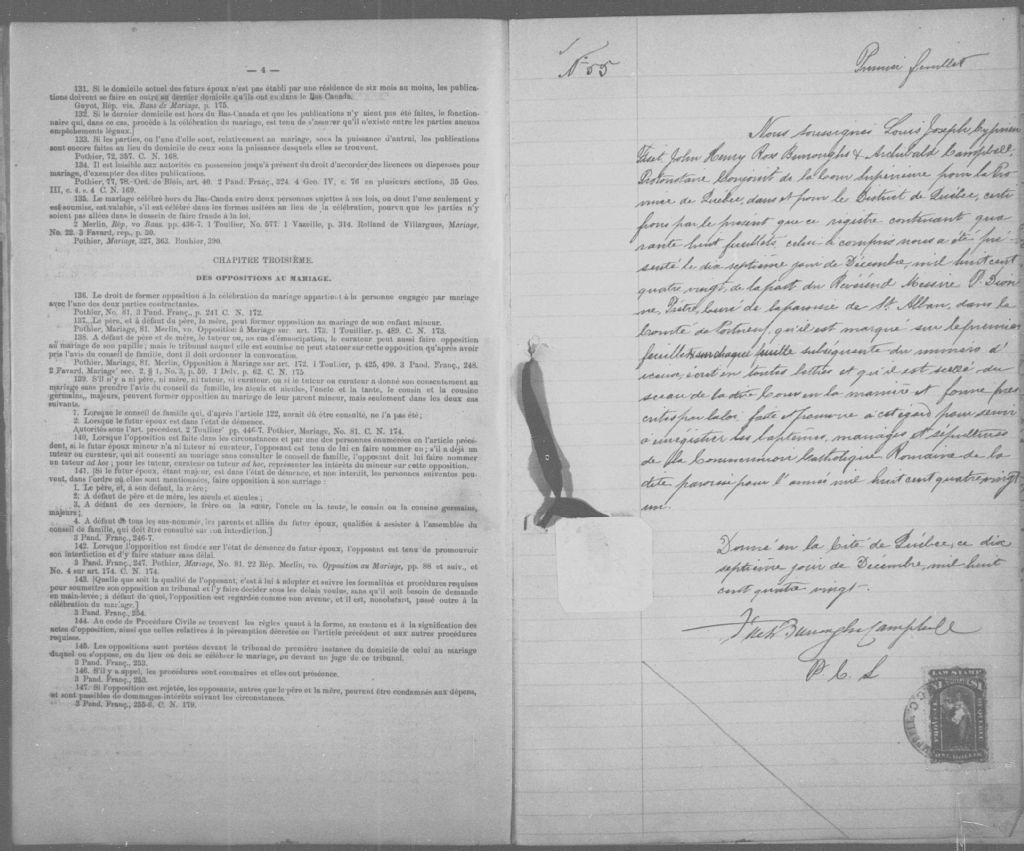 — 4 —
131. Si le domicile actuel des futurs époux n'est pas établi par une résidence de six mois au moins, les publica-
tions doivent se faire en outre au dernier domicile qu'ils ont eu dans le Bas Canada.
Guyot, Rép. vis. Bans de Mariage, p. 175.
132. Si le dernier domicile est hors du Bas-Canada et que les publications n'y aient pas été faites, le fonction-
naire qui, dans ce cas, procède à la célébration du mariage, est tenu de s'assurer qu'il n'existe entre les parties aucuns
empêchements légaux.]
133. Si les parties, ou l'une d'elle sont, relativement au mariage, sous la puissance d'autrui, les publications
sont encore faites au lieu du domicile de ceux sous la puissance desquels elles se trouvent.
Pothier, 72, 357. C. N. 168.
134. Il est loisible aux autorités en possession jusqu'à présent du droit d'accorder des licences ou dispenses pour
mariage, d'exempter des dites publications.
Pothier, 77, 78.-Ord. de Blois, art. 40. 2 Pand. Franç., 324. 4 Geo. IV, c. 76 en plusieurs sections, 35 Geo.
III, c. 4, s. 4 C. N. 169.
135. Le mariage célébré hors du Bas-Canada entre deux personnes sujettes à ses lois, ou dont l'une seulement y
est soumise, est valable, s'il est célébré dans les formes usitées au lieu de la célébration, pourvu que les parties n'y
soient pas allées dans le dessein de faire fraude à la loi.
2 Merlin, Rép, vo Bans. pp. 436-7. 1 Toullier, No. 577. 1 Vazeille, p. 314. Rolland de Villargues, Mariage,
No. 22. 3 Favard, rep., p. 50.
Pothier, Mariage, 327, 363. Bouhier, 390.
CHAPITRE TROISIÈME.
DES OPPOSITIONS AU MARIAGE.
136. Le droit de former opposition à la célébration du mariage appartient à la personne engagée par mariage
avec l'une des deux parties contractantes.
Pothier, No. 81. 3 Pand. Franç., p. 241 C. N. 172.
137. Le père, et à défaut du père, la mère, peut former opposition au mariage de son enfant mineur.
Pothier, Mariage, 81. Merlin, vo. Opposition à Mariage sur. art. 173. 1 Touillier, p. 489. C. N. 173.
138. A défaut de père et de mère, le tuteur ou, au cas d'émancipation, le curateur peut aussi faire opposition
au mariage de son pupille; mais le tribunal auquel elle est soumise ne peut statuer sur cette opposition qu'après avoir
pris l'avis du conseil de famille, dont il doit ordonner la convocation.
Pothier, Mariage, 81. Merlin, Opposition à Mariage sur art. 172. 1 Toullier, p. 425, 490. 3 Pand. Franç., 248.
2 Favard, Mariage' sec. 2, § 1, No. 3, p. 59. 1 Delv. p. 62. C. N. 175.
139. S'il n'y a ni père, ni mère, ni tuteur, ni curateur, ou si le tuteur ou curateur a donné son consentement au
mariage sans prendre l'avis du conseil de famille, les aïeuls et aïeules, l'oncle et la tante, le cousin et la cousine
germains, majeurs, peuvent former opposition au mariage de leur parent mineur, mais seulement dans les deux cas
suivants.
1. Lorsque le conseil de famille qui, d'après l'article 122, aurait dû être consulté, ne l'a pas été;
2. Lorsque le futur époux est dans l'état de démence.
Autorités sous l'art. précédent. 2 Toullier pp. 446-7. Pothier, Mariage, No. 81. C. N. 174.
140. Lorsque l'opposition est faite dans les circonstances et par une des personnes énumérées en l'article précé-
dent, si le futur époux mineur n'a ni tuteur ni curateur, l'opposant est tenu de lui en faire nommer un; s'il a déjà un
tuteur ou curateur, qui ait consenti au mariage sans consulter le conseil de famille, l'opposant doit lui faire nommer
un tuteur ad hoc; pour les tuteur, curateur ou tuteur ad hoc, représenter les intérêts du mineur sur cette opposition.
141. [Si le futur époux, étant majeur, est dans l'état de démence, et non interdit, les personnes suivantes peu-
vent, dans l'ordre où elles sont mentionnées, faire opposition à son mariage:
1. Le père, et, à son défaut, la mère;
2. A défaut de père et de mère, les aïeuls et aïeules;
3. A défaut de ces derniers, le frère ou la sœur, l'oncle ou la tante, le cousin ou la cousine germains,
majeurs;
4. A défaut de tous les sus-nommés, les parents et alliés du futur époux, qualifiés à assister à l'assemblée du
conseil de famille, qui doit être consulté sur son interdiction.]
3 Pand. Franç., 246-7.
142. Lorsque l'opposition est fondée sur l'état de démence du futur époux, l'opposant est tenu de promouvoir
son interdiction et d'y faire statuer sans délai.
3 Pand. Franç., 247. Pothier, Mariage, No. 81. 22 Rép. Merlin, vo. Opposition au Mariage, pp. 88 et suiv., et
No. 4 sur art. 174. C. N. 174.
143. [Quelle que soit la qualité de l'opposant, c'est à lui à adopter et suivre les formalités et procédures requises
pour soumettre son opposition au tribunal et l'y faire décider sous les délais voulus, sans qu'il soit besoin de demande
en main-levée; à défaut de quoi, l'opposition est regardée comme non avenue, et il est, nonobstant, passé outre à la
célébration du mariage.]
3 Pand. Franç., 254.
144. Au code de Procédure Civile se trouvent les règles quant à la forme, au contenu et à la signification des
actes d'opposition, ainsi que celles relatives à la péremption décrétée en l'article précédent et aux autres procédures
requises.
145. Les oppositions sont portées devant le tribunal de première instance du domicile de celui au mariage
duquel on s'oppose, ou du lieu où doit se célébrer le mariage, ou devant un juge de ce tribunal.
3 Pand. Franç., 253.
146. S'il y a appel, les procédures sont sommaires et elles ont préséance.
3 Pand. Franç., 253.
147. Si l'opposition est rejetée, les opposants, autres que le père et la mère, peuvent être condamnés aux dépens,
et sont passibles de dommages-intérêts suivant les circonstances.
3 Pand. Franç., 255-6. C. N. 179.
No 55
Premier feuillet
Nous Soussignés Louis Joseph Cyprien
Fiset, John Henry Ross Burroughs & Archibald Campbell,
Protonotaire Conjoint de la Cour Superieure pour la Pro
vince de Québec, dans et pour le District de Québec, certi
fions par le present que ce registre contenant qua
rante huit feuillets celui ci compris nous a été pré
senté le dix septième jour de Décembre, mil huit cent
quatre vingt, de la part du Révérend Messire P. Dion
ne, Prêtre, Curé de la paroisse de St. Alban, dans la
Comté de Portneuf, qu'il est marqué sur le premier
feuillet & sur chaque feuillet subséquents du numéro d'
icieux, écrit en toutes lettres et qu'il est scellé du
sceau de la dite Cour en la manière et forme pres
crites par la loi faite et pourvue à cet égard pour servir
à enrégistrer les baptêmes, mariages et sépultures
de la Communion Catholique Romaine de la
dite paroisse pour l'année mil huit cent quatre vingt
un.
Donné en la Cité de Québec, ce dix
septième jour de Décembre, mil huit
cent quatre vingt.
Fiset Burroughs Campbell
P. C. S
LAW STAMP
ONE DOLLAR